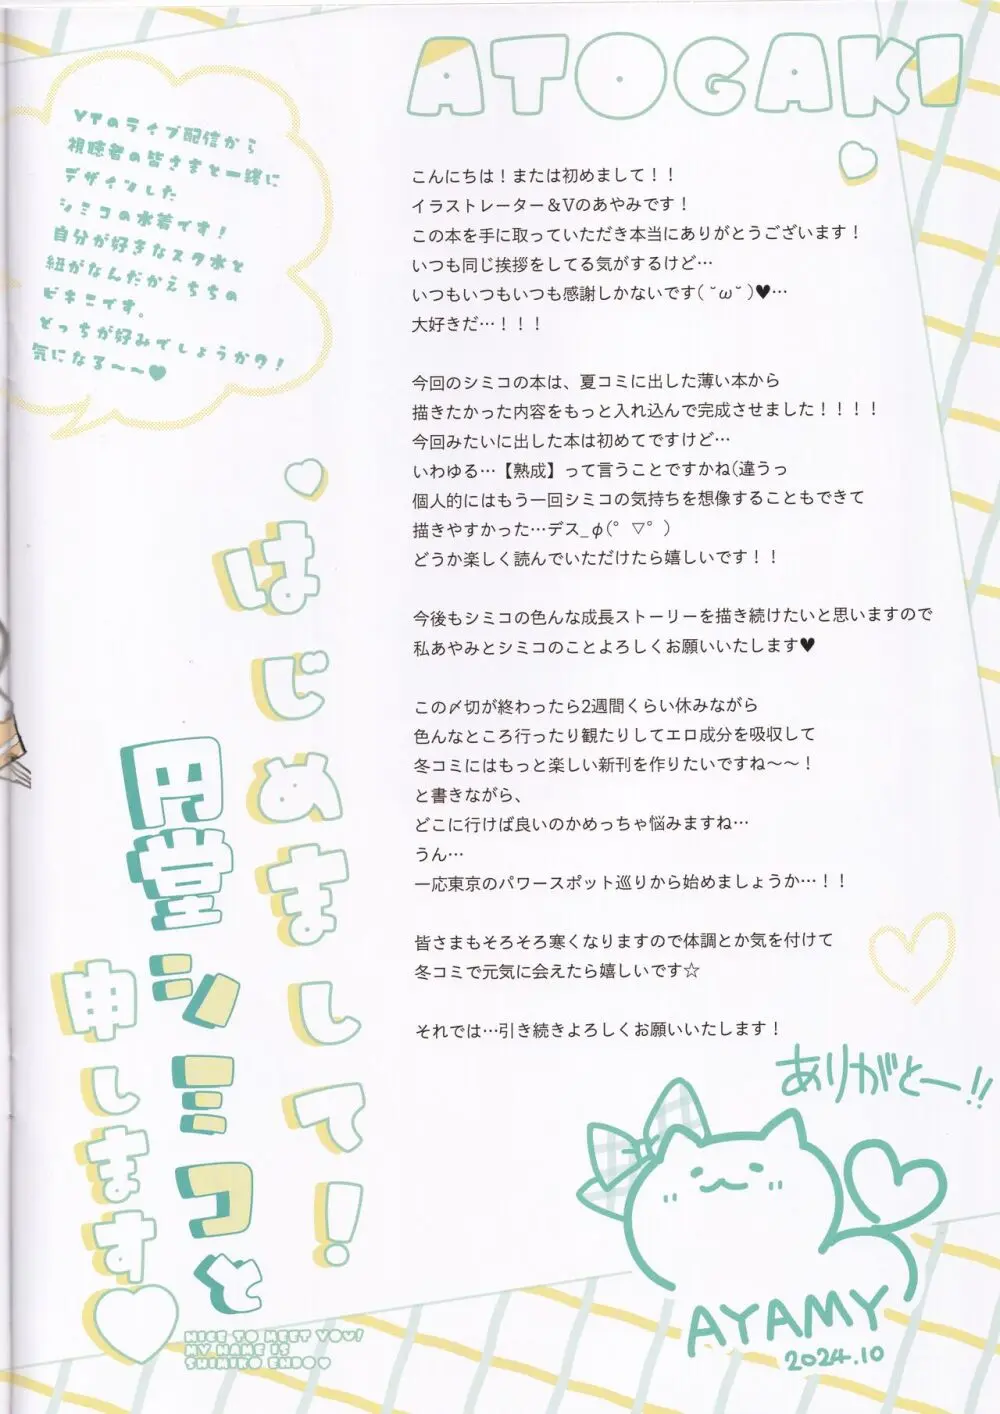 ATOGAKI
VTのライブ配信から
視聴者の皆さまと一緒に
デザインした
シミコの水着です!
自分が好きなスク水と
紐がなんだかえちちの
ビキニです。
どっちが好みでしょうか?!
気になる〜〜♥
こんにちは!または初めまして!!
イラストレーター&Vのあやみです!
この本を手に取っていただき本当にありがとうございます!
いつも同じ挨拶をしてる気がするけど…
いつもいつもいつも感謝しかないです( ˘ω˘ )♥…
大好きだ…!!!
今回のシミコの本は、夏コミに出した薄い本から
描きたかった内容をもっと入れ込んで完成させました!!!!
今回みたいに出した本は初めてですけど…
いわゆる…【熟成】って言うことですかね(違うっ
個人的にはもう一回シミコの気持ちを想像することもできて
描きやすかった…デス_φ(゜▽゜)
どうか楽しく読んでいただけたら嬉しいです!!
今後もシミコの色んな成長ストーリーを描き続けたいと思いますので
私あやみとシミコのことよろしくお願いいたします♥
この〆切が終わったら2週間くらい休みながら
色んなところ行ったり観たりしてエロ成分を吸収して
冬コミにはもっと楽しい新刊を作りたいですね〜〜!
と書きながら、
どこに行けば良いのかめっちゃ悩みますね…
うん…
一応東京のパワースポット巡りから始めましょうか…!!
皆さまもそろそろ寒くなりますので体調とか気を付けて
冬コミで元気に会えたら嬉しいです☆
それでは…引き続きよろしくお願いいたします!
はじめまして!
円堂シミコと
申します♡
NICE TO MEET YOU!
MY NAME IS
SHIMIKO ENDO♥
ありがとー!!
AYAMY
2024.10